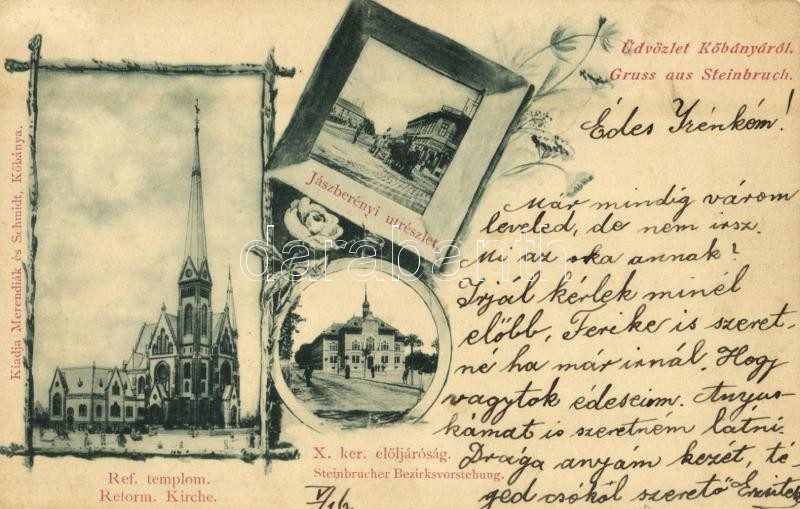 Üdvözlet Kőbányáról.
Gruss aus Steinbruch.
Kiadja Merendiák és Schmidt, Kőbánya.
Jászberényi utrészlet.
Ref. templom.
Reform. Kirche.
X. ker. előljáróság.
Steinbrucher Bezirksvorstehung.
Édes Irénkém!
Már mindig várom
leveled, de nem irsz.
Mi az oka annak?
Irjál kérlek minél
előbb, Ferike is szeret-
né ha már irnál. Hogy
vagytok édeseim. Anyus-
kámat is szeretném látni.
Drága anyám kezét, té-
ged csókol szerető Erzsike
V/16.
darabanth